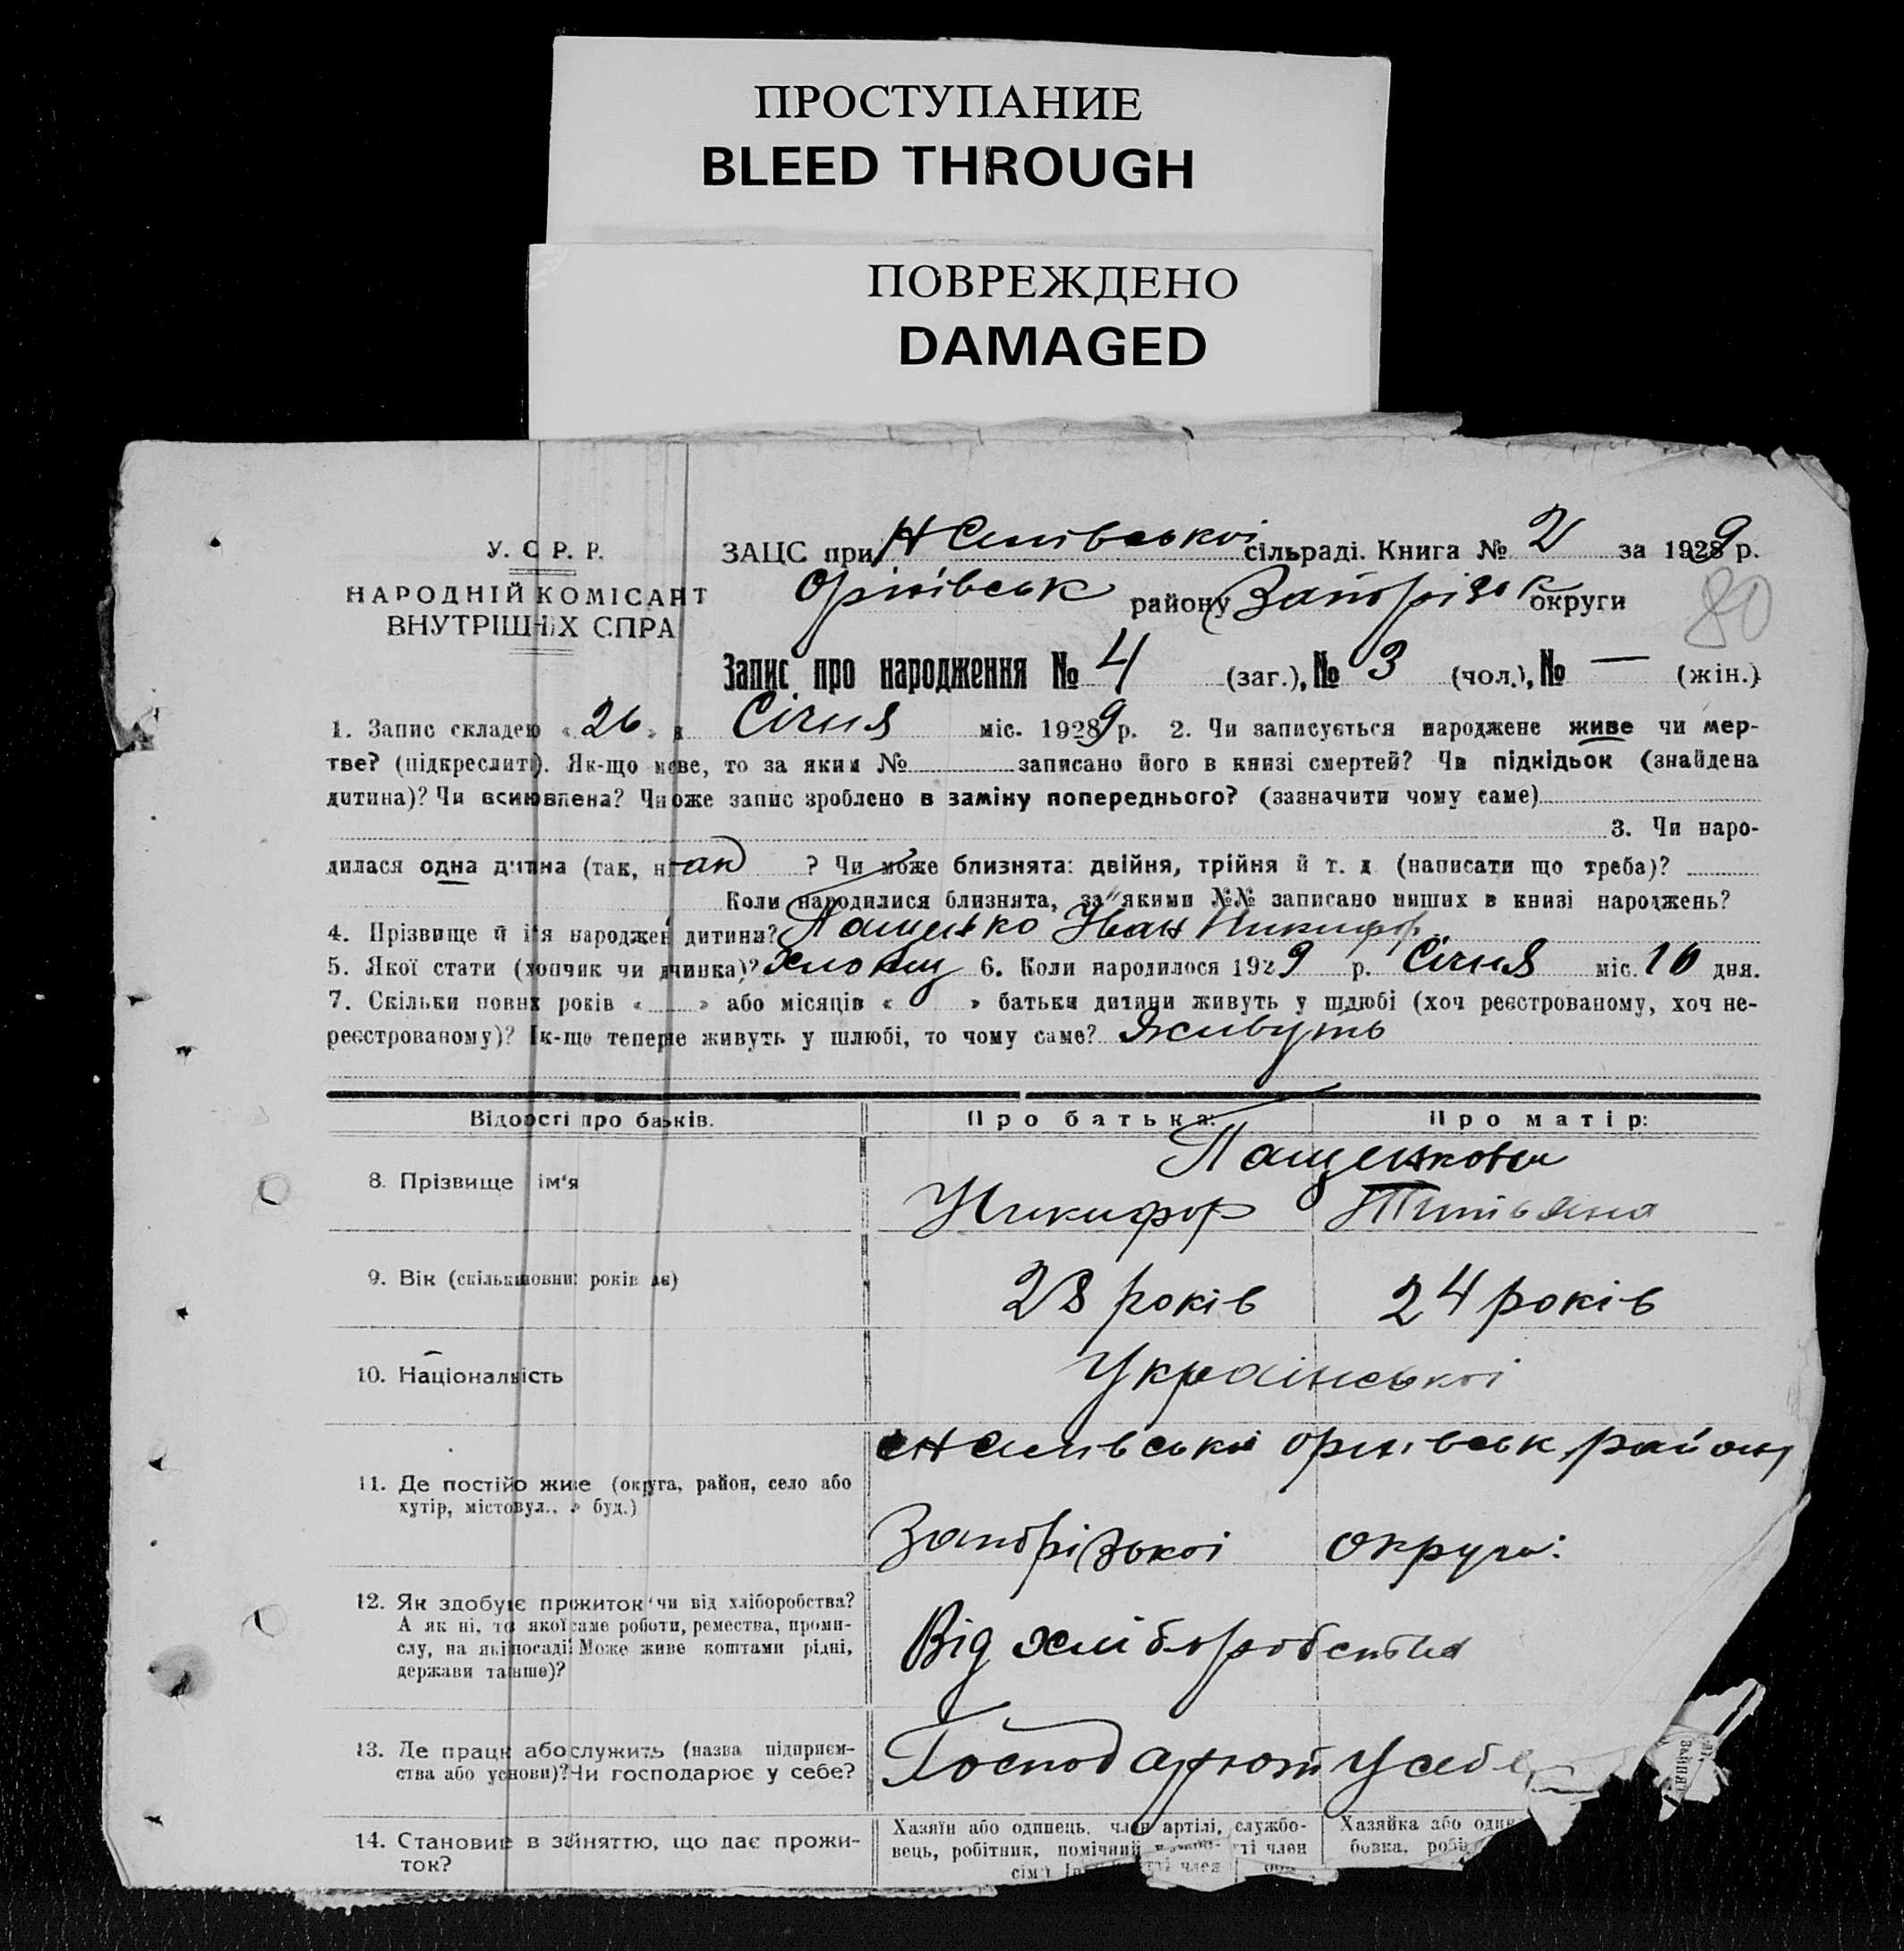 ПРОСТУПАНИЕ
BLEED THROUGH
ПОВРЕЖДЕНО
DAMAGED
У. С Р. Р.
НАРОДНІЙ КОМІСАРІТ
ВНУТРІШНІХ СПРА
ЗАЦС при сільраді. Книга № 2 за 1929 р.
району Запорізьк округи
80
Запис про народження № 4 (заг.), № 3 (чол.), № — (жін.)
1. Запис складено « 26 » Січня міс. 1929 р. 2. Чи записується народжене живе чи мер-
тве? (підкреслити). Як-що мове, то за яким № записано його в книзі смертей? Чи підкідьок (знайдена
дитина)? Чи всиновлена? Чи оже запис зроблено в заміну попереднього? (зазначити чому саме)
3. Чи наро-
дилася одна дитина (так, н ак ? Чи може близнята: двійня, трійня й т. д (написати що треба)?
Коли народилися близнята, за якими №№ записано инших в книзі народжень?
4. Прізвище й ім'я народжен дитини? Пащенко Іван Никифор
5. Якої стати (хопчик чи дчинка)? хлопец 6. Коли народилося 1929 р. Січня міс. 16 дня.
7. Скільки повнх років « » або місяців « » батьки дитини живуть у шлюбі (хоч реєстрованому, хоч не-
реєстрованому)? Як-що теперіе живуть у шлюбі, то чому саме? Живуть
Відомсті про баьків. Про батька: Про матір:
Пащенкови
8. Прізвище ім'я Никифор Титьяна
9. Вік (скільки повних років має) 28 років 24 років
10. Національність Української
11. Де постійо живе (округа, район, село або району
хутір, місто вул.. буд.)
Запорізької округи:
12. Як здобуіє прожиток чи від хліборобства?
А як ні, то якої саме роботи, ремества, проми-
слу, на якій посаді? Може живе коштами рідні,
держави та інше)?
Від хліборобства
13. Де працю або служить (назва підприєм-
ства або установи)? Чи господарює у себе?
Господарюют у себе
14. Становищ в зайняттю, що дає прожи-
ток?
Хазяїн або одинець, член артілі, службо-
вець, робітник, помічний ті член
сім'ї
Хазяйка або один
бовка, робі